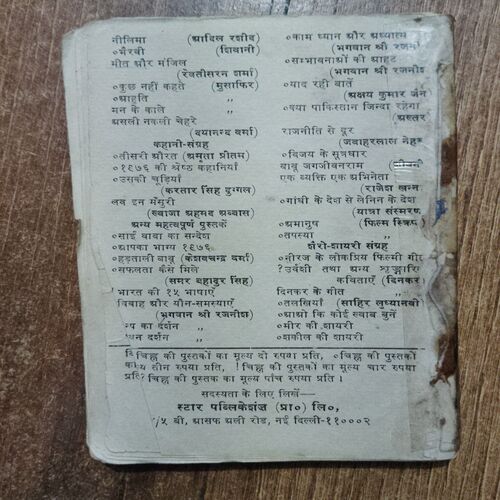 नीलिमा (आदिल रशीद)
०भैरवी (शिवानी)
मीत और मंजिल
(रेवतीसरन शर्मा)
०कुछ नहीं कहते (मुसाफिर)
०आहुति ,,
मन के काले ,,
असली नकली चेहरे
(दयानन्द वर्मा)
कहानी-संग्रह
०तीसरी औरत (अमृता प्रीतम)
०१९७६ की श्रेष्ठ कहानियाँ
०उसकी चूड़ियाँ
(करतार सिंह दुग्गल)
लव इन मंसुरी
(ख्वाजा अहमद अब्बास)
अन्य महत्वपूर्ण पुस्तकें
०साईं बाबा का सन्देश
०आपका भाग्य १९७६
०हड़ताली बाबू (केशवचन्द्र वर्मा)
०सफलता कैसे मिले
(समर बहादुर सिंह)
भारत की १५ भाषाएँ
विवाह और यौन-समस्याएँ
(भगवान श्री रजनीश)
का दर्शन ,,
दर्शन ,,
०काम ध्यान और अध्यात्म
(भगवान श्री
०सम्भावनाओं की आहट
(भगवान श्री रजनीश
०याद रही बातें
(अक्षय कुमार जैन
०क्या पाकिस्तान जिन्दा रहेगा
(अस्तर
राजनीति से दूर
(जवाहरलाल नेह
०विजय के सूत्रधार
बाबू जगजीवनराम
एक व्यक्ति एक अभिनेता
(राजेश खन्न
०गांधी के देश से लेनिन के देश
(यात्रा संस्मरण
०अमानुष (फिल्म स्क्रिप्ट
०तपस्या
शेरो-शायरी संग्रह
०नीरज के लोकप्रिय फिल्मी गीत
?उर्वशी तथा अन्य श्रृङ्गारिक
कविताएँ (दिनकर)
दिनकर के गीत ,,
०तलखियाँ (साहिर लुध्यानवी)
०आओ कि कोई ख्वाब बुनें
०मीर की शायरी
०शकील की शायरी
चिह्न की पुस्तकों का मूल्य दो रुपया प्रति, ०चिह्न की पुस्तकों
का तीन रुपया प्रति, ! चिह्न की पुस्तकों का मूल्य चार रुपया
प्रति? चिह्न की पुस्तक का मूल्य पाँच रुपया प्रति ।
सदस्यता के लिए लिखें—
स्टार पब्लिकेशंज़ (प्रा०) लि०,
/५ बी, आसफ अली रोड, नई दिल्ली-११०००२